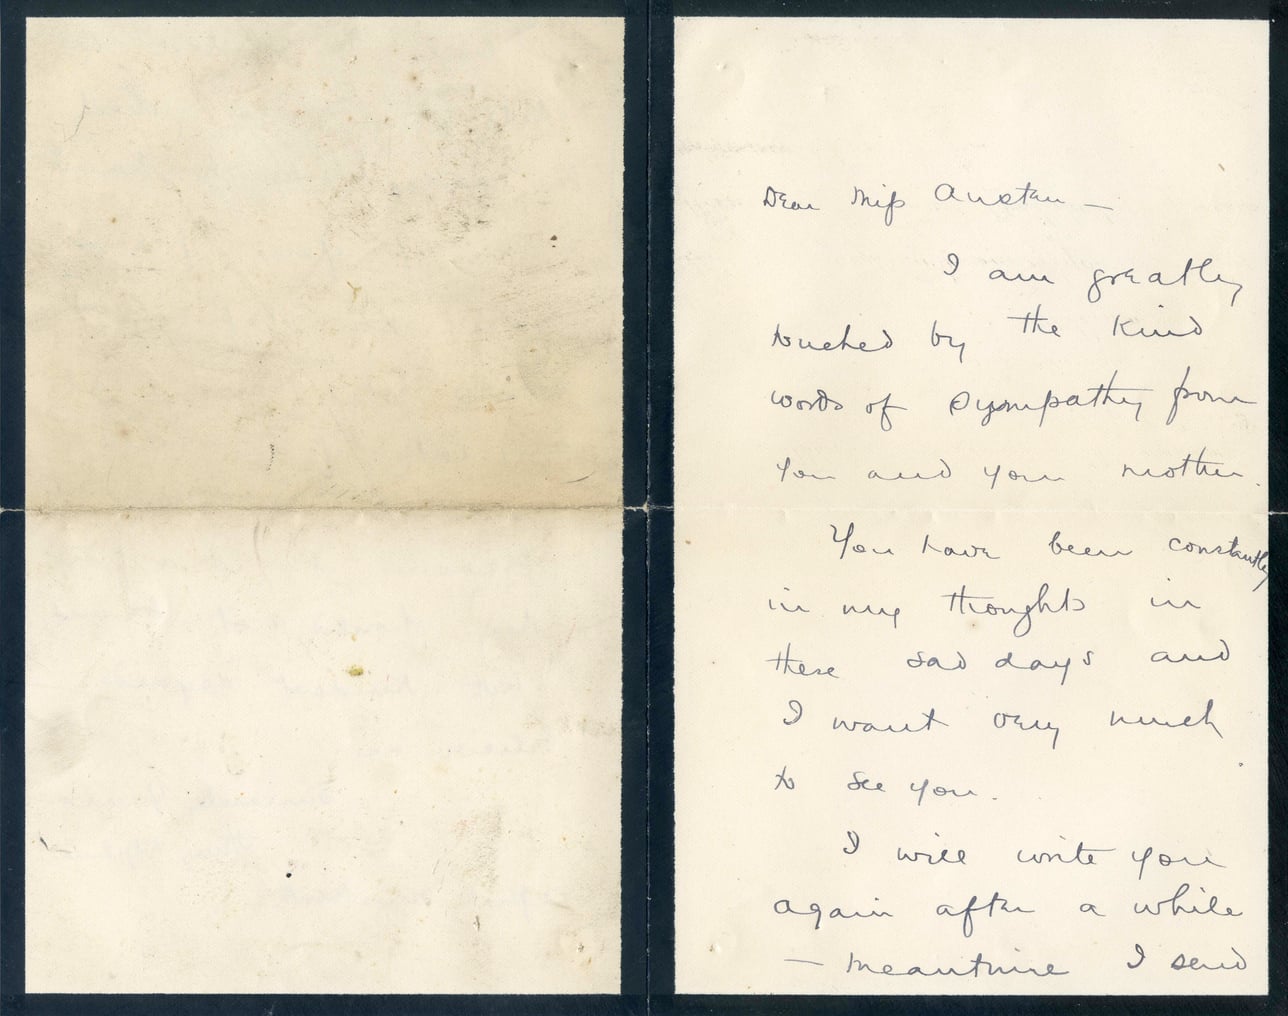 Dear Miss Austen —
I am greatly
touched by the kind
words of sympathy from
you and your mother.
You have been constantly
in my thoughts in
these sad days and
I want very much
to see you.
I will write you
again after a while
— meantime I send